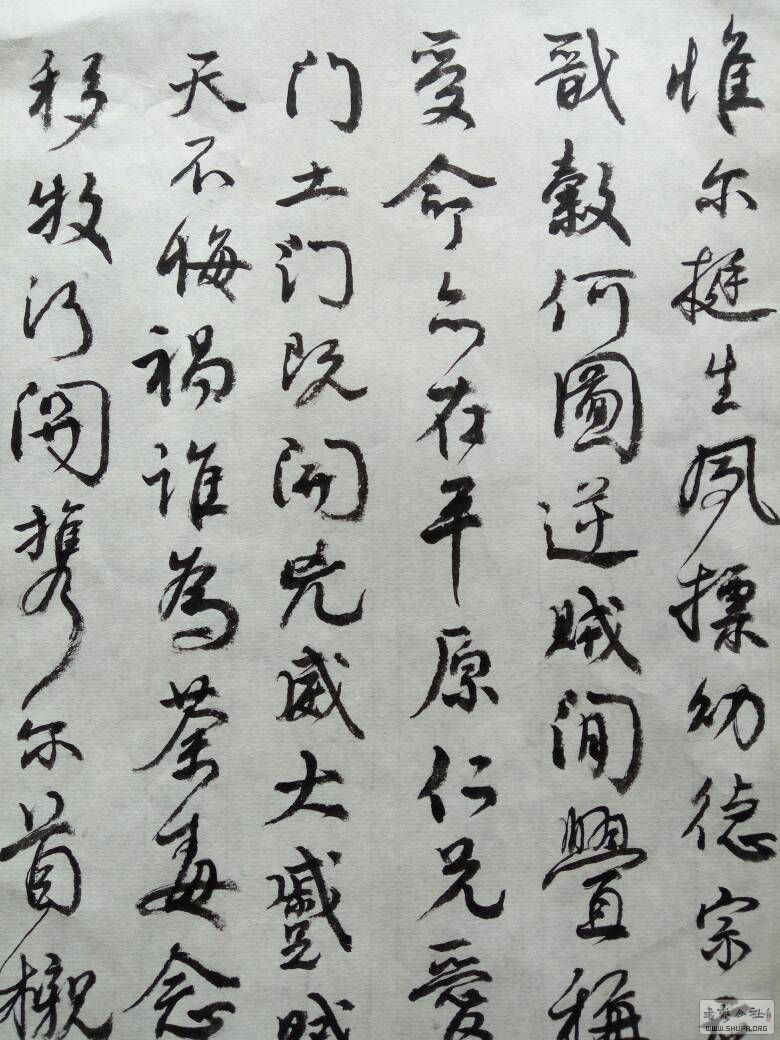 惟尔挺生夙摽幼德宗
戬穀何圖逆贼间釁称
受命亦在平原仁兄爱
门土门既开兇威大蹙贼
天不悔祸谁为荼毒念
移牧河关携尔首櫬
WWW.SHUFA.ORG